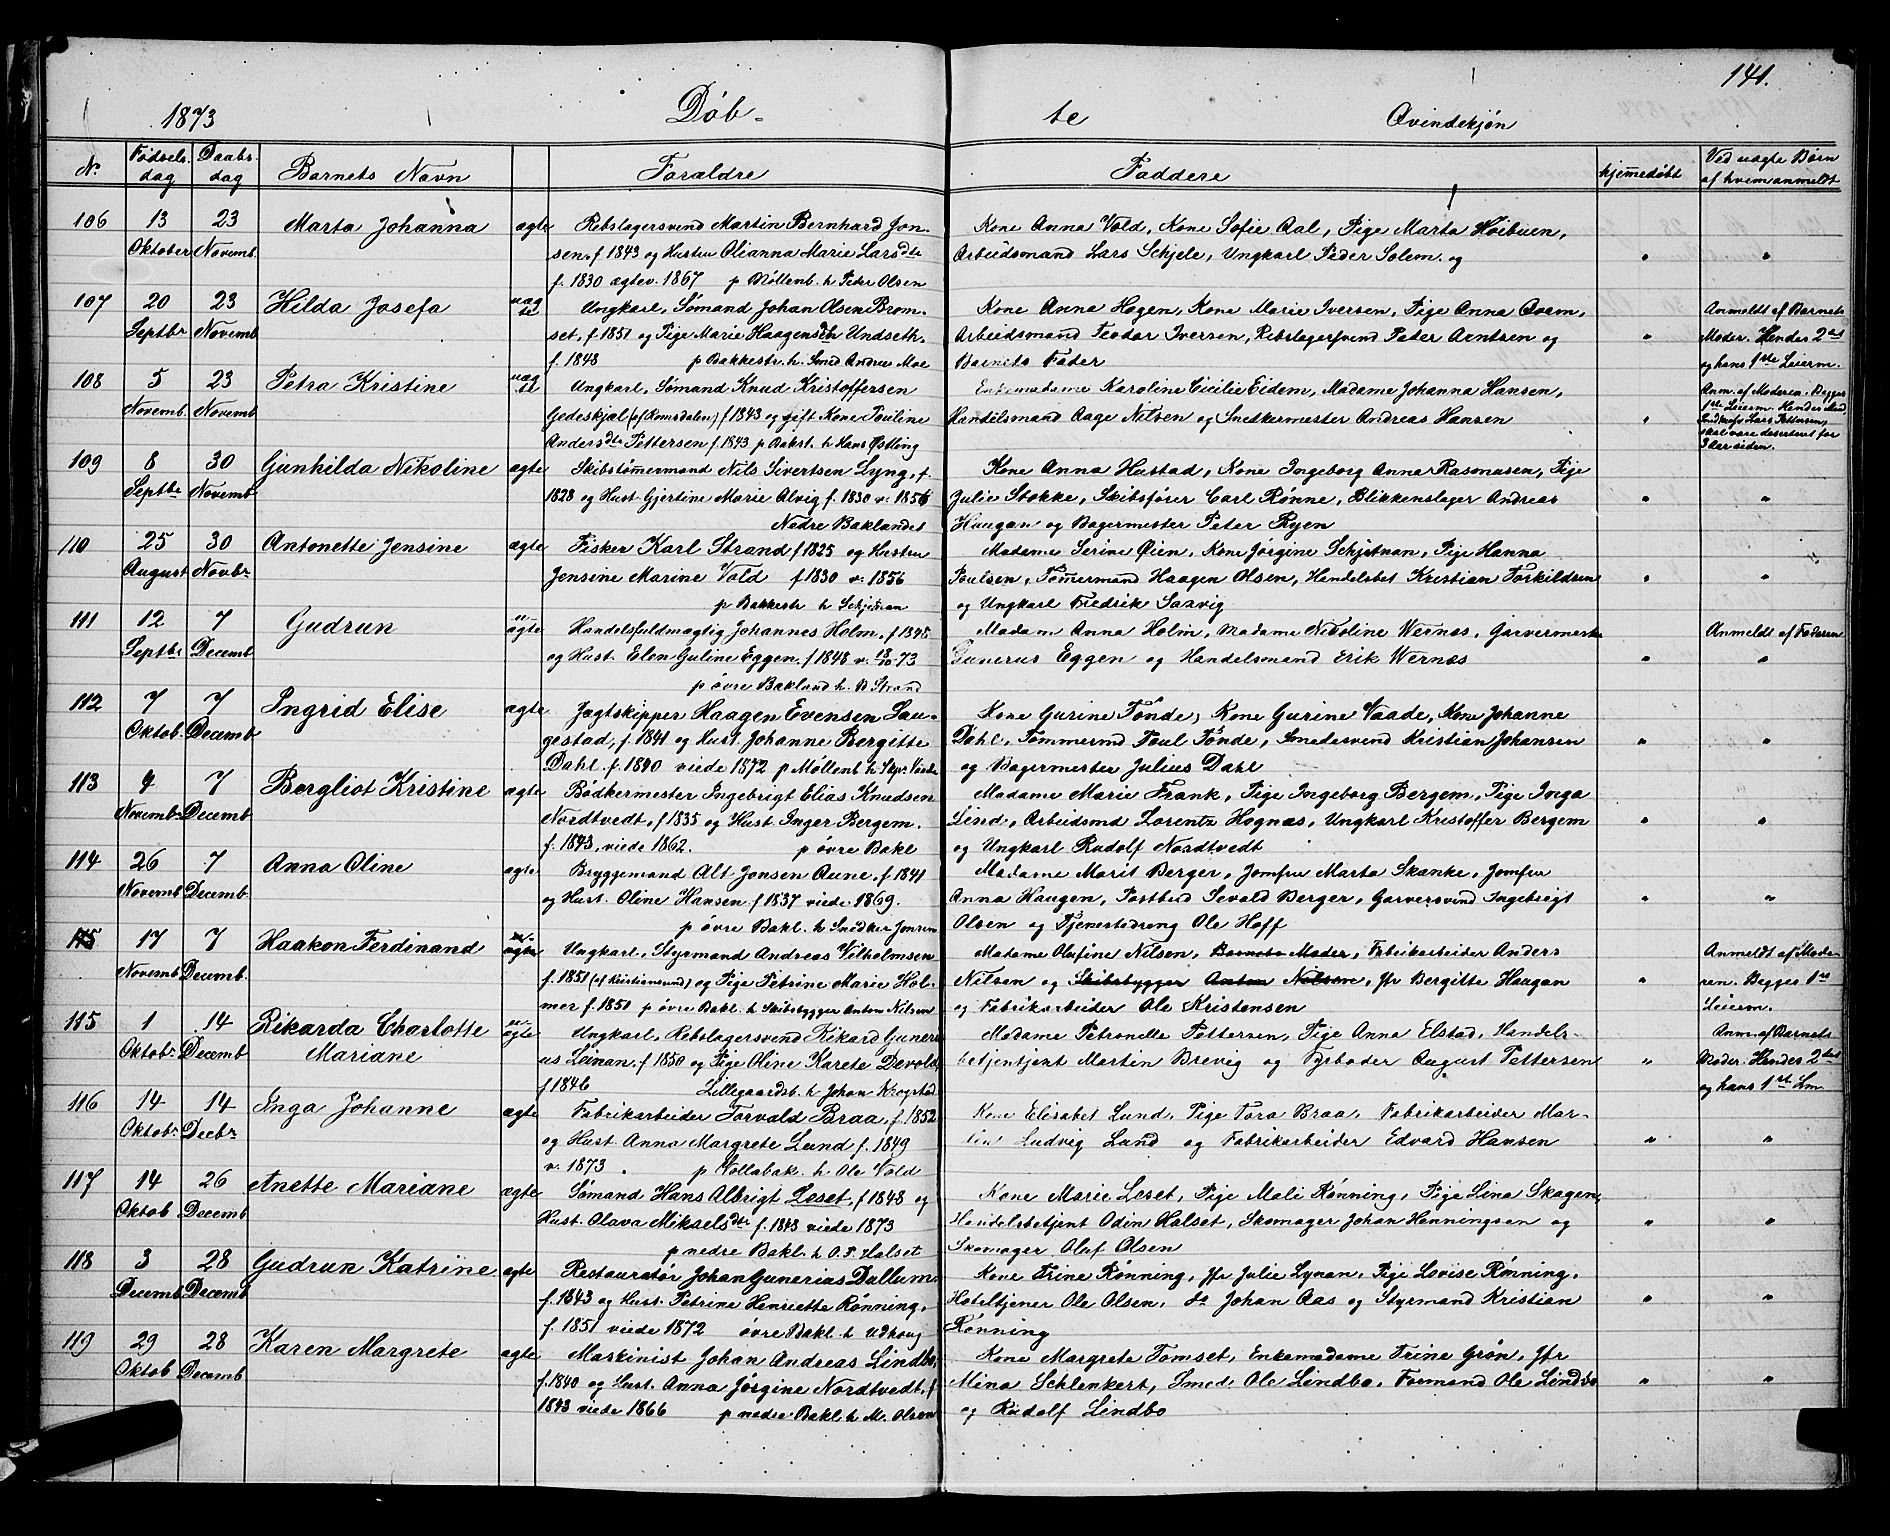 141.
1873 Döb- te Qvindekjön
No Fødsels- dag Daabs- dag Barnets Navn Forældre Faddere hjemmedöbt Ved uægte Børn af hvem anmeldt
106 13 23 Marta Johanna ægte Rebslagersvend Martin Bernhard Jon- Kone Anna Vold, Kone Sofie Aal, Pige Marta Høibuen,
Oktober Novemb. sen, f 1843 og Hustru Olianna Marie Larsdtr Arbeidsmand Lars Schjele, Ungkarl Peder Solem og " "
f. 1830 ægtev. 1867 p Möllenb. h Peter Olsen
107 20 23 Hilda Josefa uæg Ungkarl, Sømand Johan Olsen Brom- Kone Anna Hagen, Kone Marie Iversen, Pige Anna Qvam, Anmeldt af Barnets
Septbr Novemb te set, f 1851 og Pige Marie Haagensdtr Undseth, Arbeidsmand Teodor Iversen, Rebslagersvend Peter Arntsen og " Moder. Hendes 2det
f. 1848 p Bakkestr. h. Smed Andreas Moe Barnets Fader og hans 1ste Leierm.
108 5 23 Petra Kristine uæg Ungkarl, Sømand Knud Kristoffersen Enkemadame Karoline Cicilie Eidem, Madame Johanna Hansen, Anm. af Moderen. Begges
Novemb. Novemb. te Gedeskjæl (af Romsdalen) f 1843 og gift Kone Pauline Handelsmand Aage Nilsen og Snetkermester Andreas Hansen " 1ste Leierm. Hendes Mand,
Andersdtr Pettersen f. 1843 p Bakst. h Hans Østling Lars Pettersen, skal være deserteret for 3 Aar siden.
109 8 30 Gunhilda Nikoline ægte Skibstömermand Nils Sivertsen Lyng, f. Kone Anna Hustad, Kone Ingeborg Anna Rasmusen, Pige
Septbr Novemb 1828 og Hust. Gjertine Marie Alvig f. 1830 v. 1856 Julie Stokke, Skibsfører Carl Rønne, Blikkenslager Andreas " "
Nedre Baklandet Haugan og Bagermester Peter Ryen
110 25 30 Antonette Jensine ægte Fisker Karl Strand f 1825 og Hustru Madame Serine Øien, Kone Jørgine Schjetnan, Pige Hanna
August Novbr Jensine Marine Vold f 1830 v. 1856 Poulsen, Tømermand Haagen Olsen, Handelsbet Kristian Torkildsen " "
p Bakkestr h Schjetnan og Ungkarl Fredrik Saxvig
111 12 7 Gudrun u Handelsfuldmægtig Johannes Holm, f 1845 Madam Anna Holm, Madame Nikoline Wernes, Garvermester Anmeldt af Faderen
Septbr Decemb ægte og Hust. Elen Guline Eggen, f 1848 v. 18/10 73 Gunerus Eggen og Handelsmand Erik Wernæs " "
p øvre Bakland h. B Strand
112 7 7 Ingrid Elise ægte Jægtskipper Haagen Evensen Lau- Kone Gurine Tønde, Kone Gurine Vaade, Kone Johanne
Oktob. Decemb gestad, f. 1841 og Hust. Johanne Bergitte Dahl, Tømmermd Poul Tønde, Smedesvend Kristian Johansen " "
Dahl f. 1840 viede 1872 p Møllenb h Skpr. Vaade og Bagermester Julius Dahl
113 4 7 Bergliot Kristine ægte Bødkermester Ingebrigt Elias Knudsen Madame Marie Frank, Pige Ingeborg Bergem, Pige Inga
Novemb. Decemb Nordtvedt, f 1835 og Hust Inger Bergem. Lind, Arbeidsmd Lorentz Hognæs, Ungkarl Kristoffer Bergem " "
f. 1843, viede 1862. p øvre Bakl og Ungkarl Rudolf Nordtvedt
114 26 7 Anna Oline ægte Bryggemand Alt Jonsen Aune, f 1841 Madame Marit Berger, Jomfru Marta Skanke, Jomfru
Novemb Decemb og Hust. Oline Hansen f 1837 viede 1869. Anna Haugen, Postbud Sevald Berger, Garversvend Ingebrigt " "
p øvre Bakl. h Snedker Jonsen Olsen og Tjenestedreng Ole Hoff
115 17 7 Haakon Ferdinand ægte Ungkarl, Styrmand Andreas Vilholmsen Madame Olufine Nilsen, Barnets Moder, Fabrikarbeider Anders Anmeldt af Mode-
Novemb Decemb. f. 1851 (af Kristiansund) og Pige Petrine Marie Hol- Nilsen og Skibsbygger Anton Nilsen, Jfr Bergitte Haugan " ren. Begges 1ste
mer f. 1850 p øvre Bakl. h Skibsbygger Anton Nilsen og Fabrikarbeider Ole Kristensen Leierm.
115 1 14 Rikarda Charlotte u- Ungkarl, Rebslagersvend Rikard Guneri- Madame Petronelle Pettersen, Pige Anna Elstad, Handels- Anm. af Barnets
Oktobr Decemb Mariane ægte us Leinan, f 1850 og Pige Oline Karete Devold, betjentjent Martin Brevig og Fyrbøder August Pettersen " Moder. Hendes 2det
f 1846 Lillegaardsb. h Johan Krogstad og hans 1ste Lm
116 14 14 Inga Johanne ægte Fabrikarbeider Torvald Braa, f 1852 Kone Elisabet Lund, Pige Tora Braa, Fabrikarbeider Mar-
Oktobr Decbr og Hust. Anna Margrete Lund f. 1849 tin Ludvig Lund og Fabrikarbeider Edvard Hansen " "
v. 1873. p Vollabak. h Ole Vold
117 14 26 Anette Mariane ægte Sømand Hans Albrigt Leset, f 1848 og Kone Marie Leset, Pige Mali Rønning, Pige Lina Skagen,
Oktob Decemb Hust. Olava Mikaelsdtr f. 1848 viede 1873 Handelsbetjent Odin Halset, Skomager Johan Henningsen og " "
p nedre Bakl. h O. P. Halset Skomager Oluf Olsen
118 3 28 Gudrun Katrine ægte Restauratør Johan Gunerius Dullum, Kone Trine Rønning, Jfr Julie Lynan, Pige Lovise Rønning,
Decemb Decemb f. 1843 og Hust. Petrine Henriette Rønning, Hoteltjener Ole Olsen, do Johan Aas og Styrmand Kristian " "
f. 1851 viede 1872 øvre Bakl. h Udhoug Rønning
119 29 28 Karen Margrete ægte Maskinist Johan Andreas Lindbo, Kone Margrete Tomset, Enkemadame Trine Grøn, Jfr
Oktob Decemb f. 1840 og Hust. Anna Jørgine Nordtvedt, f Mina Schlenkert, Smed. Ole Lindbo, Formand Ole Lindbo " "
1843 viede 1866 p nedre Bakl h M. Olsen og Rudolf Lindbo